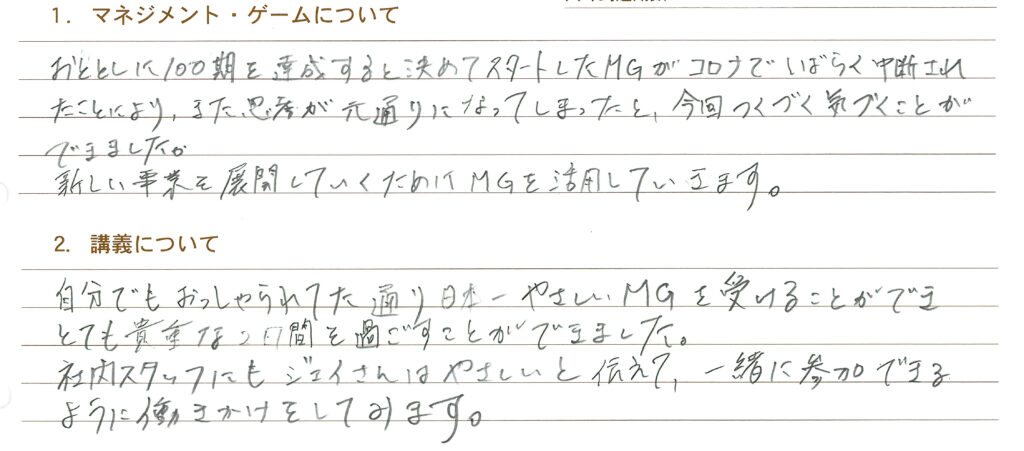 1. マネジメント・ゲームについて
おととしに100期を達成すると決めてスタートしたMGがコロナでいばらく中断され
たことにより、また思考が元通りになってしまったと、今回つくづく気づくことが
できました。
新しい事業を展開していくためにMGを活用していきます。
2. 講義について
自分でもおっしゃられてた通り日本一やさしいMGを受けることができ
とても貴重な2日間を過ごすことができました。
社内スタッフにもジェイさんはやさしいと伝えて、一緒に参加できる
ように働きかけをしてみます。